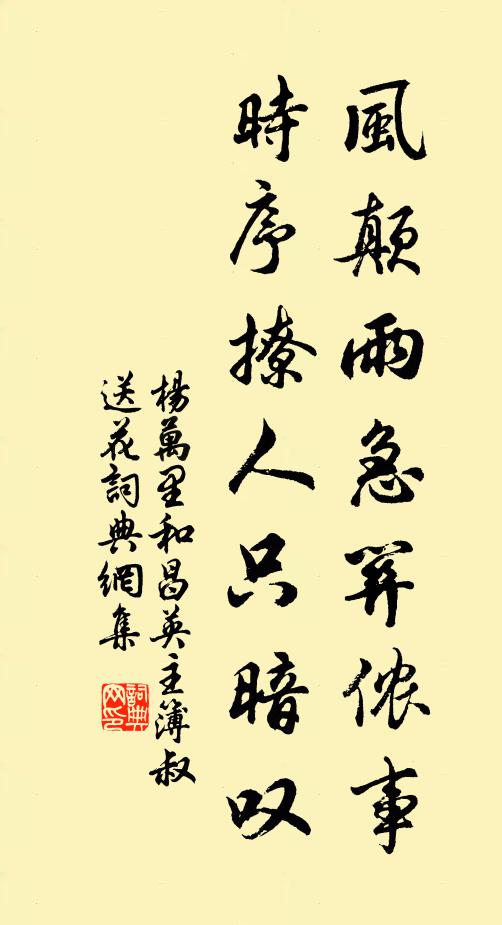 風顛雨急關侬事
時序撩人只暗叹
楊萬里和昌英主簿叔
送花詞典網集
詞典
网印